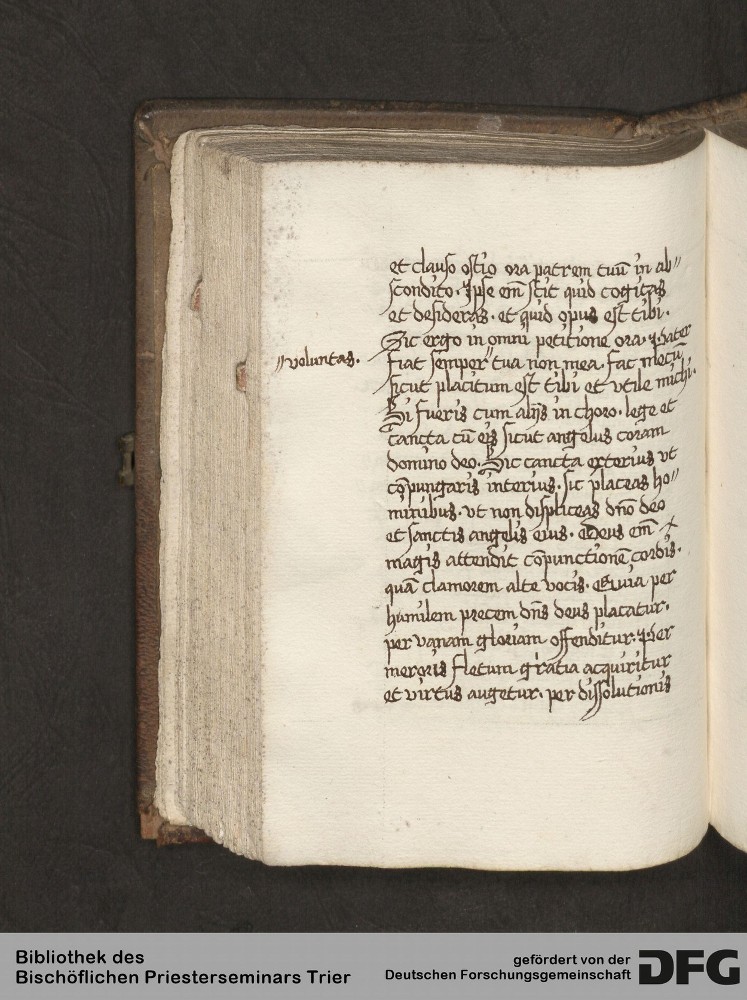 et clauso ostio ora patrem tuū in ab〃
scondito. Ipse em̄ scit quid cogitas
et desideras. et quid opus est tibi.
Sic ergo in omni petitione ora. Pater
〃voluntas.
fiat semper〃tua non mea. fac mecū
sicut placitum est tibi et vtile michi.
Si fueris cum alijs in choro. lege et
cancta cū eis sicut angelus coram
domino deo. Sic cancta exterius vt
cōpungaris interius. sic placeas ho〃
minibus. vt non displiceas dn̄o deo
et sanctis angelis eius. Deus em̄
magis attendit cōpunctionē cordis.
quā clamorem alte vocis. Quia per
humilem precem dn̄s deus placatur.
per vanam gloriam offenditur. Per
meroris fletum gratia acquiritur
et virtus augetur. per dissolutionis
Bibliothek des
Bischöflichen Priesterseminars Trier
gefördert von der
Deutschen Forschungsgemeinschaft
DFG